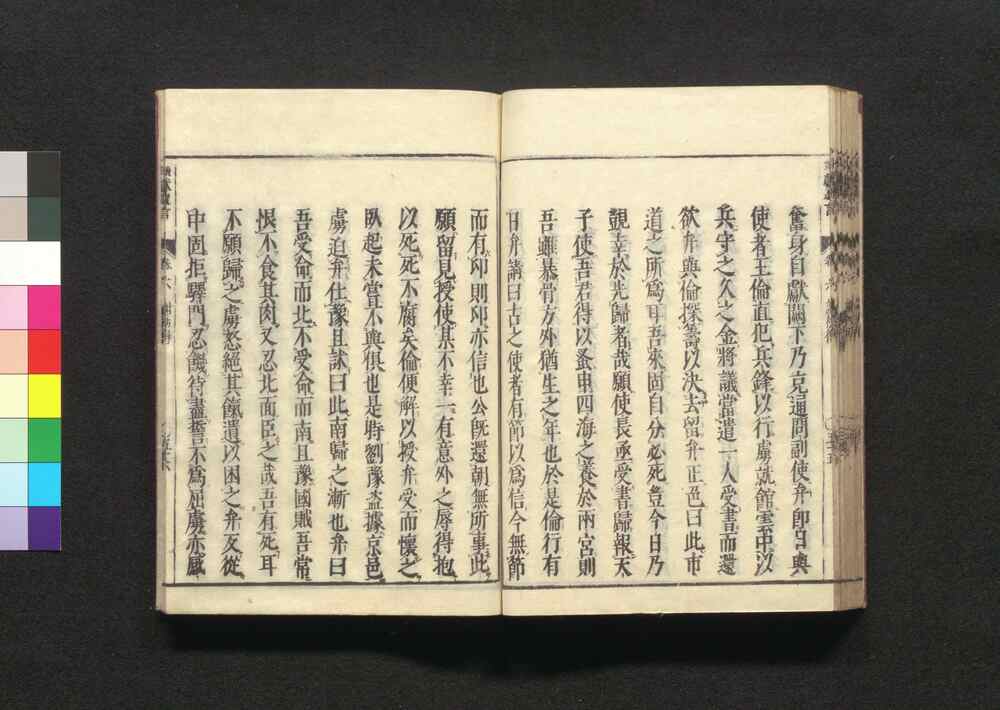 奮身自獻闕下乃克通問副使弁即日與
使者王倫直犯兵鋒以行虜就館雲中以
兵守之久之金將議當遣一人受書而還
欲弁與倫探籌以決去留弁正色曰此市
道之所爲耳吾來固自分必死豈今日乃
覬幸於先歸者哉願使長亟受書歸報天
子使吾君得以蚤申四海之養於兩宮則
吾雖暴骨方外猶生之年也於是倫行有
日弁請曰古之使者有節以爲信今無節
而有印則印亦信也公旣還朝無所事此
願留見授使某不幸一有意外之辱得抱
以死死不腐矣倫便解以授弁受而懷之
臥起未嘗不與俱也是時劉豫盗據京邑
虜迫弁仕豫且訹曰此南歸之漸也弁曰
吾受命而北不受命而南且豫國賊吾常
恨不食其肉又忍北面臣之哉吾有死耳
不願歸之虜怒絕其餼遺以困之弁又從
中固拒驛門忍饑待盡誓不爲屈虜亦感